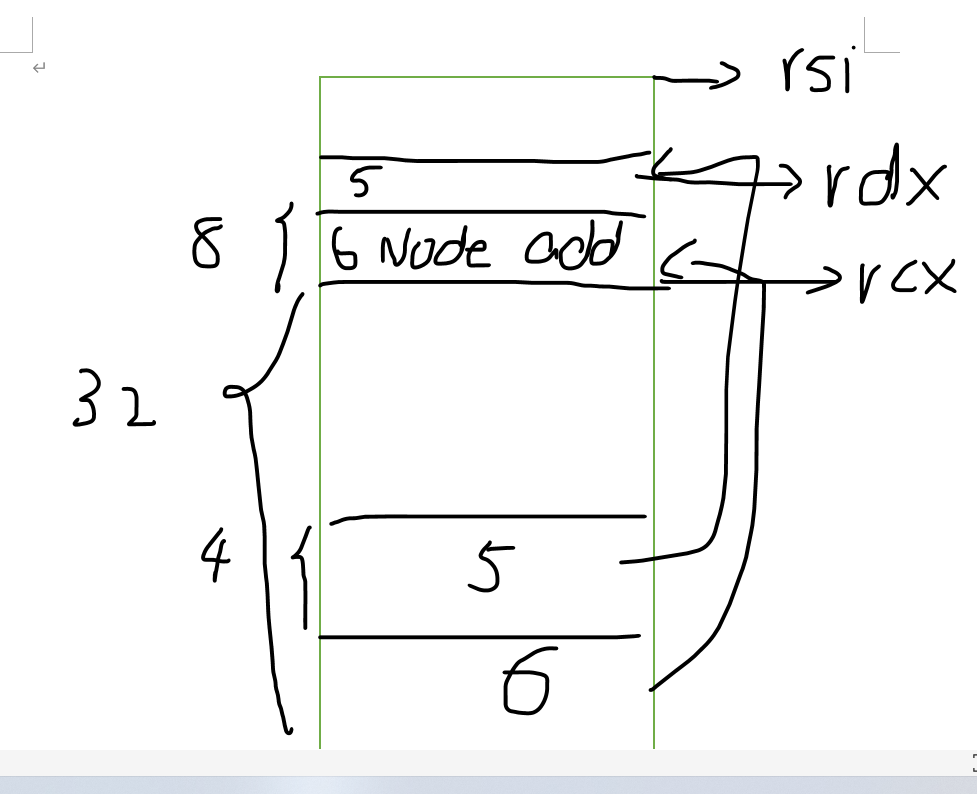 rsi
5
rdx
8
6 Node add
rcx
32
4
5
6